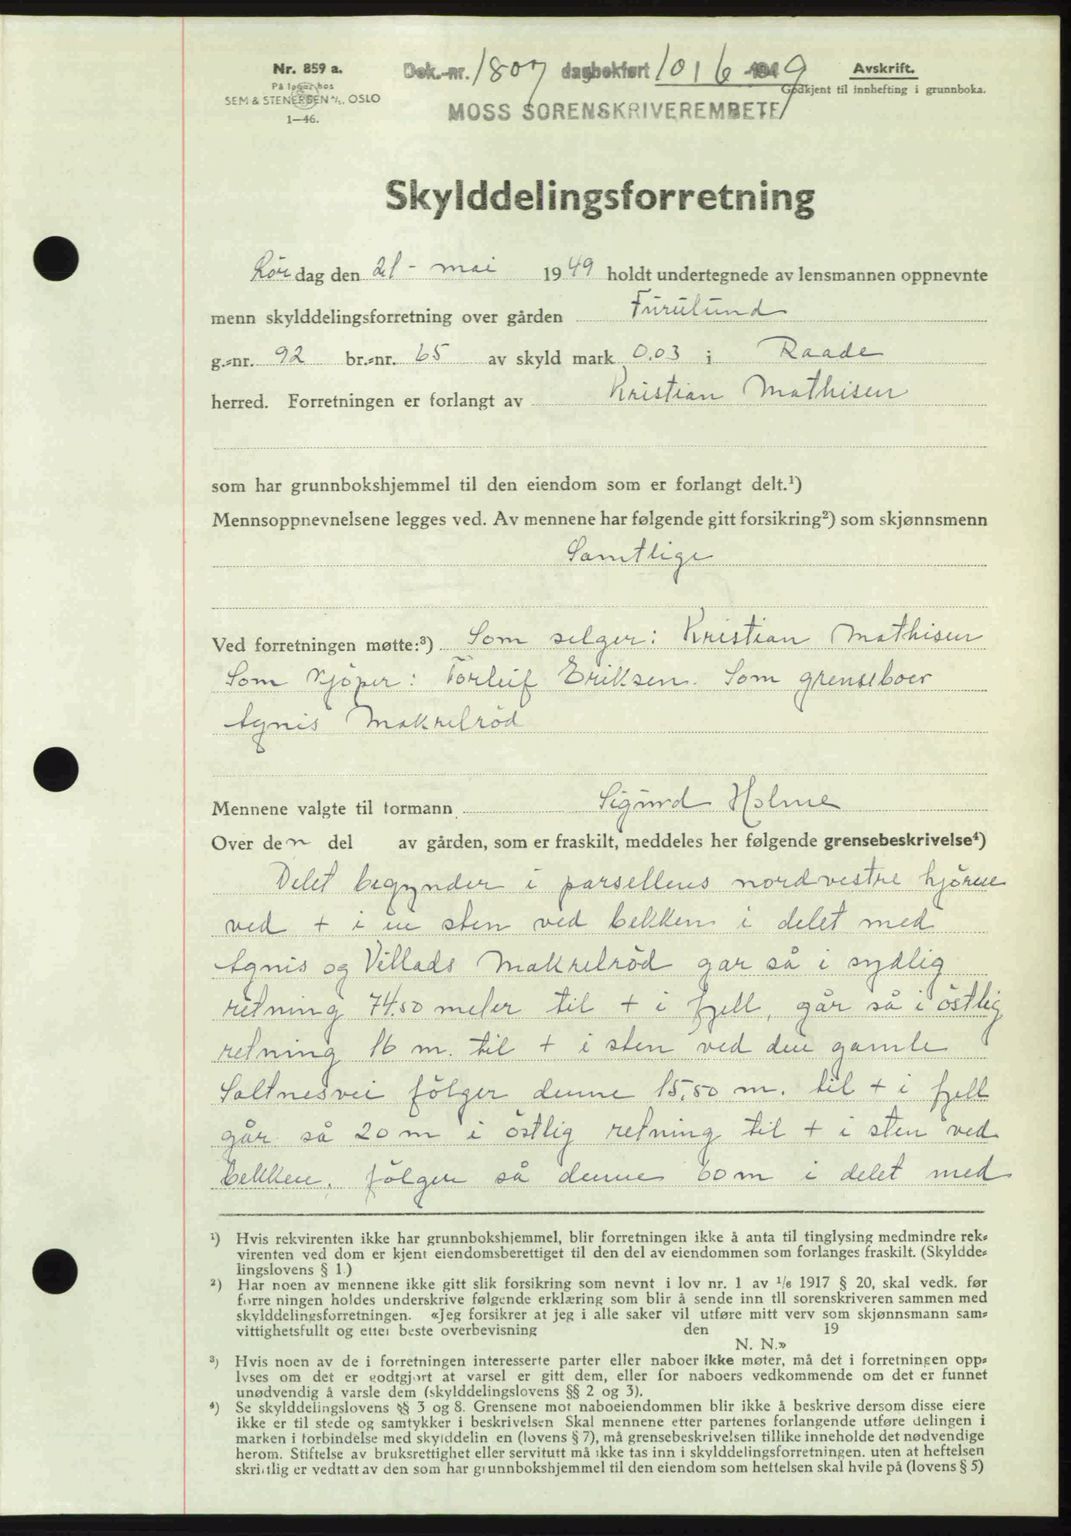 Nr. 859 a.
På lager hos
SEM & STENERSEN A/S, OSLO
1—46.
Dok.-nr. 1807 dagbokført 10/6 1949
MOSS SORENSKRIVEREMBETE
Avskrift.
Godkjent til innhefting i grunnboka.
Skylddelingsforretning
Lørdag den 21 - mai 1949 holdt undertegnede av lensmannen oppnevnte
menn skylddelingsforretning over gården Furulund
g.-nr. 92 br.-nr. 65 av skyld mark 0.03 i Raade
herred. Forretningen er forlangt av Kristian Mathisen
som har grunnbokshjemmel til den eiendom som er forlangt delt.¹)
Mennsoppnevnelsene legges ved. Av mennene har følgende gitt forsikring²) som skjønnsmenn
Samtlige
Ved forretningen møtte:³) Som selger: Kristian Mathisen
Som kjöper: Torleif Eriksen. Som grenseboer
Agnis Makrelröd
Mennene valgte til formann Sigurd Holme
Over den del av gården, som er fraskilt, meddeles her følgende grensebeskrivelse⁴)
Delet begynder i parsellens nordvestre hjörne
ved + i en sten ved bekken i delet med
Agnis og Villads Makrelröd gar så i sydlig
retning 74.50 meter til + i fjell, går så i östlig
retning 16 m. til + i sten ved den gamle
Saltnesvei fölger denne 15,50 m. til + i fjell
går så 20 m i östlig retning til + i sten ved
bekken, fölger så denne 60 m i delet med
¹) Hvis rekvirenten ikke har grunnbokshjemmel, blir forretningen ikke å anta til tinglysing medmindre rek-
virenten ved dom er kjent eiendomsberettiget til den del av eiendommen som forlanges fraskilt. (Skyldde-
lingslovens § 1.)
²) Har noen av mennene ikke gitt slik forsikring som nevnt i lov nr. 1 av 1/6 1917 § 20, skal vedk. før
forretningen holdes underskrive følgende erklæring som blir å sende inn til sorenskriveren sammen med
skylddelingsforretningen. «Jeg forsikrer at jeg i alle saker vil utføre mitt verv som skjønnsmann sam-
vittighetsfullt og etter beste overbevisning den 19
N. N.»
³) Hvis noen av de i forretningen interesserte parter eller naboer ikke møter, må det i forretningen opp-
lyses om det er godtgjort at varsel er gitt dem, eller for naboers vedkommende om det er funnet
unødvendig å varsle dem (skylddelingslovens §§ 2 og 3).
⁴) Se skylddelingslovens §§ 3 og 8. Grensene mot naboeiendommen blir ikke å beskrive dersom disse eiere
ikke er til stede og samtykker i beskrivelsen Skal mennene etter partenes forlangende utføre delingen i
marken i forbindelse med skylddelingen (lovens § 7), må grensebeskrivelsen tillike inneholde det nødvendige
herom. Stiftelse av bruksrettighet eller servitutt må ikke tas inn i skylddelingsforretningen, uten at heftelsen
skriftlig er vedtatt av den som har grunnbokshjemmel til den eiendom som heftelsen skal hvile på (lovens § 5)